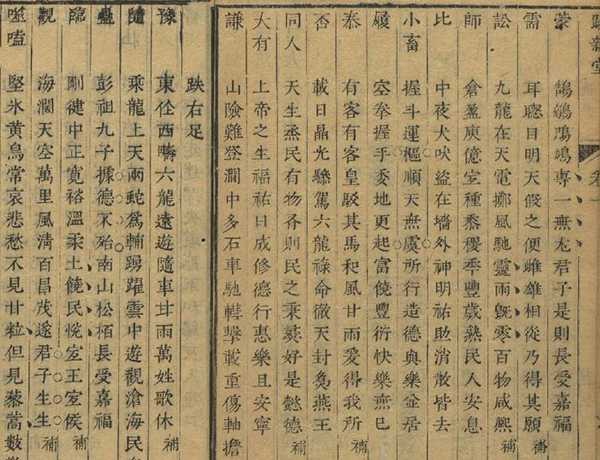 蒙 鳲鳩鴟鳴專一無尤君子是則長受嘉福
需 耳聰目明天假之便雌雄相從乃得其願 補
訟 九龍在天電擲風馳靈雨旣零百物咸熙 補
師 倉盈庾億室種黍稷年豐歲熟民人安息
比 中夜犬吠盜在墻外神明祐助消散皆去
小畜 握斗運樞順天無虞所行造德與樂並居
履 空拳握手委地更起富饒豐衍快樂無已
泰 有客有客皇駁其馬和風甘雨愛得我所 補
否 載日晶光驂駕六龍祿命徹天封為燕王
同人 天生烝民有物各則民之秉彝好是懿德 補
大有 上帝之生福祐日成修德行惠樂且安寧
謙 山險難登澗中多石車馳轊擊載重傷軸擔
跌右足
豫 東作西疇六龍遠遊隨車甘雨萬姓歌休 補
隨 乘龍上天兩蛇為輔踴躍雲中遊觀滄海民
蠱 彭祖九子據德不殆南山松柏長受嘉福
臨 剛健中正寬裕溫柔土饒民悅室王室侯 補
觀 海瀾天空萬里風清百昌茂遂君子生生 補
噬嗑 堅氷黃鳥常哀悲愁不見甘粒但見藜蒿數